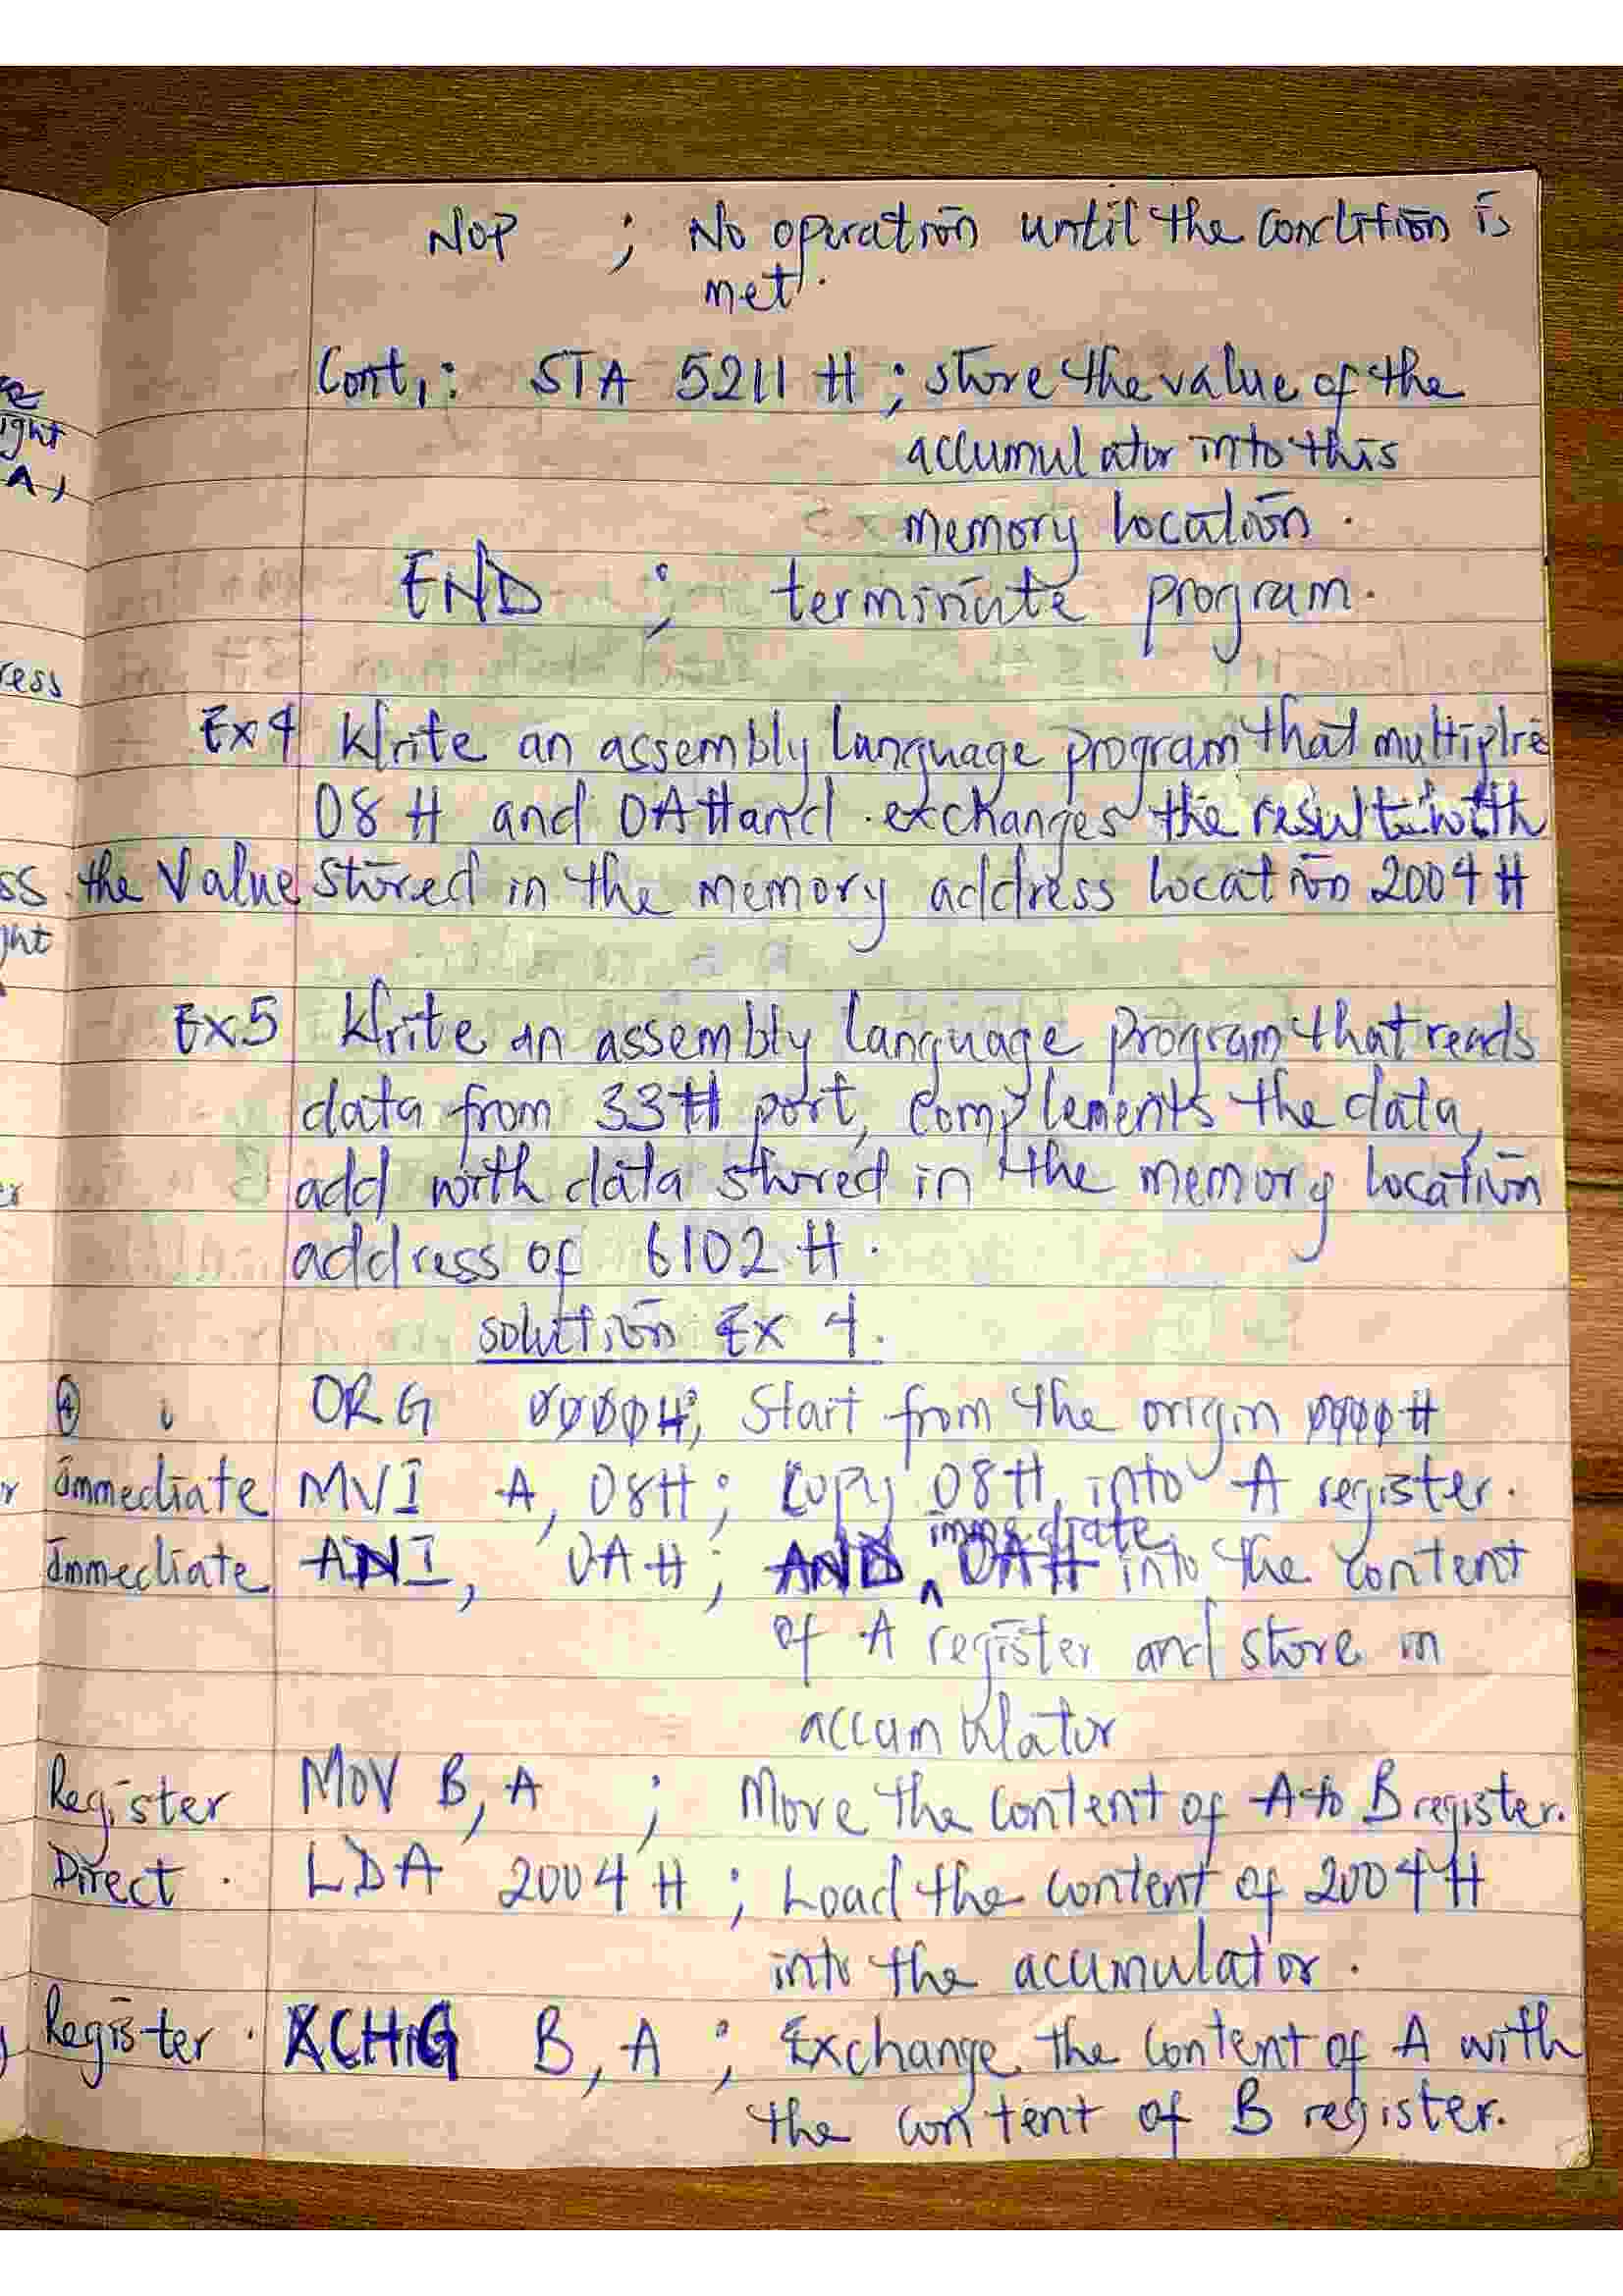 NOP ; No operation until the condition is
met.
Cont1: STA 5211 H ; store the value of the
accumulator into this
memory location.
END ; terminate program.
Ex 4 Write an assembly language program that multiplie
08 H and 0AH and exchanges the result with
the value stored in the memory address location 2004 H
Ex 5 Write an assembly language program that reads
data from 33H port, complements the data,
add with data stored in the memory location
address of 6102 H.
solution Ex 4.
④ ORG 0000H; Start from the origin 0000H
immediate MVI A, 08H; Copy 08H into A register.
immediate ANI, 0AH; AND immediate 0AH into the content
of A register and store in
accumulator
Register MOV B, A ; Move the content of A to B register.
Direct. LDA 2004 H ; Load the content of 2004 H
into the acumulator.
Register. XCHG B, A ; Exchange the content of A with
the content of B register.
ight
A)
ress
ss
ght
er
r